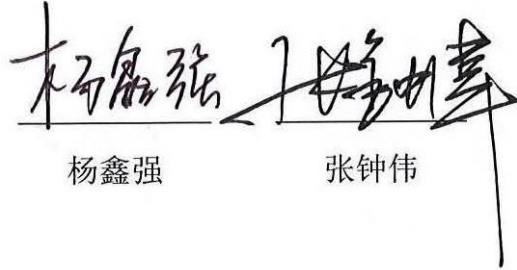 杨鑫强 张钟伟
杨鑫强 张钟伟